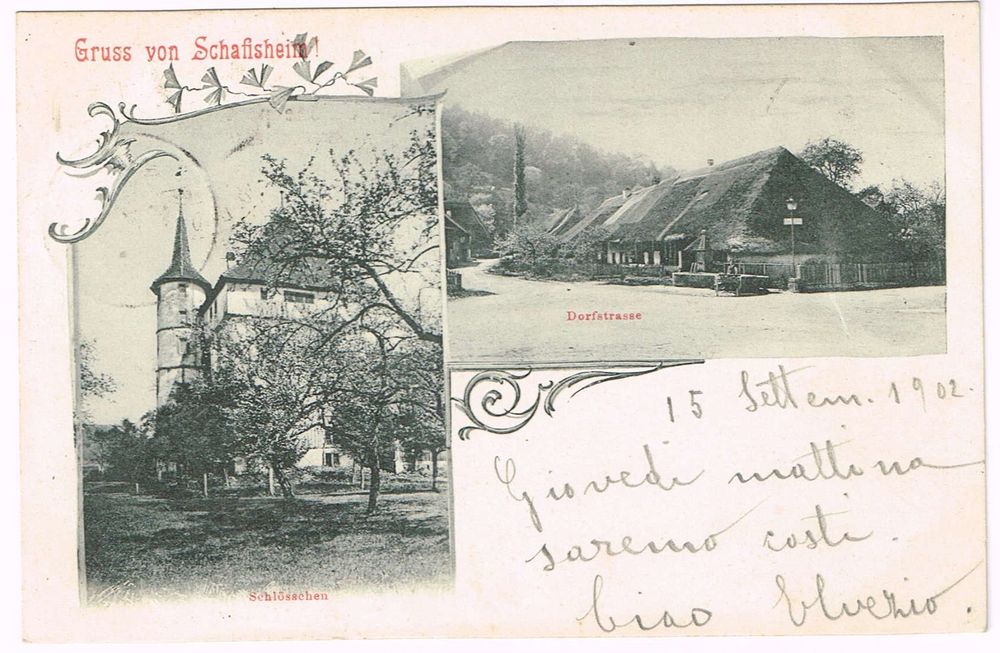 Gruss von Schafisheim!
Dorfstrasse
Schlösschen
15 Settem. 1902.
Giovedi mattina
saremo costi.
Ciao Elvezio.